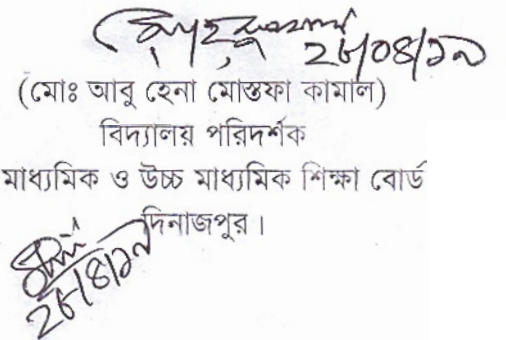 ২৮/০৪/১৯
(মোঃ আবু হেনা মোস্তফা কামাল)
বিদ্যালয় পরিদর্শক
মাধ্যমিক ও উচ্চ মাধ্যমিক শিক্ষা বোর্ড
দিনাজপুর।
২৮/৪/১৯